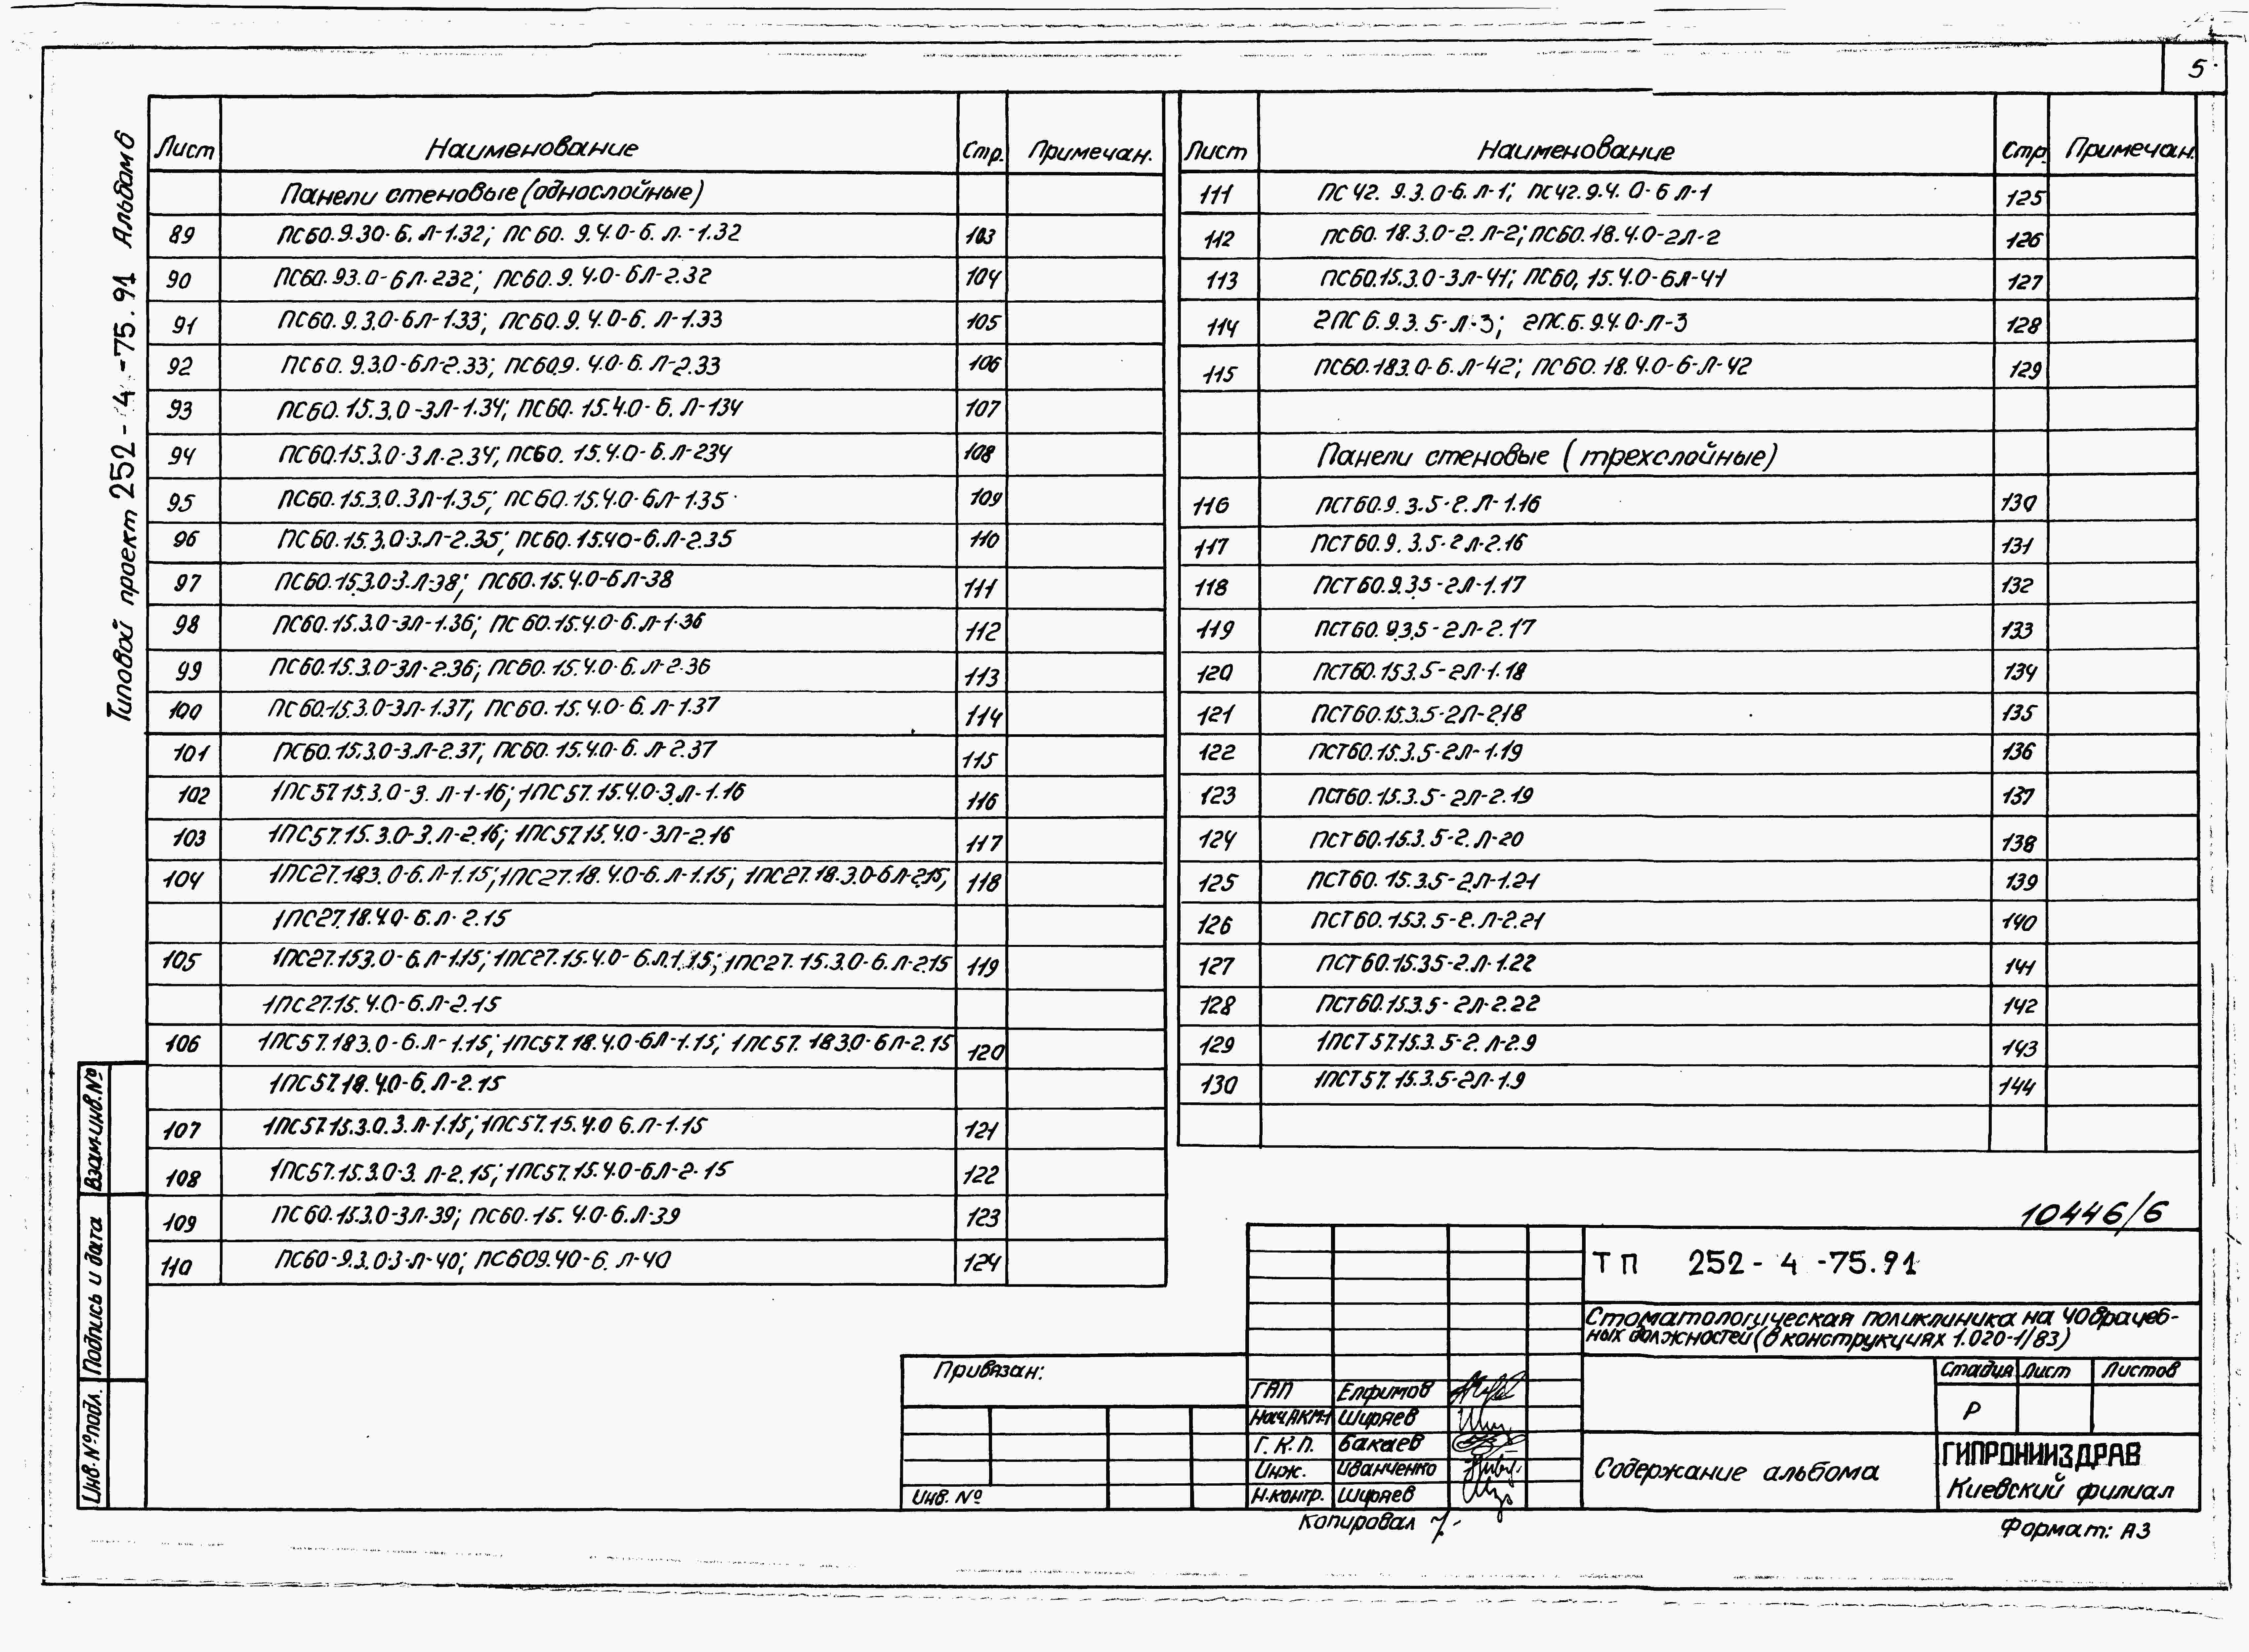 5
Типовой проект 252-4-75.91 Альбом 6
Лист Наименование Стр. Примечан.
Панели стеновые (однослойные)
89 ПС60.9.30-6.Л-1.32; ПС60.9.4.0-6.Л.-1.32 103
90 ПС60.93.0-6Л-232; ПС60.9.4.0-6Л-2.32 104
91 ПС60.9.3.0-6Л-1.33; ПС60.9.4.0-6.Л-1.33 105
92 ПС60.9.3.0-6Л-2.33; ПС60.9.4.0-6.Л-2.33 106
93 ПС60.15.3.0-3Л-1.34; ПС60.15.4.0-6.Л-134 107
94 ПС60.15.3.0-3Л-2.34; ПС60.15.4.0-6.Л-234 108
95 ПС60.15.3.0.3Л-1.35; ПС60.15.4.0-6Л-1.35 109
96 ПС60.15.3.0-3.Л-2.35; ПС60.15.40-6.Л-2.35 110
97 ПС60.15.3.0-3.Л-38; ПС60.15.4.0-6Л-38 111
98 ПС60.15.3.0-3Л-1.36; ПС60.15.4.0-6.Л-1.36 112
99 ПС60.15.3.0-3Л-2.36; ПС60.15.4.0-6.Л-2.36 113
100 ПС60.15.3.0-3Л-1.37; ПС60.15.4.0-6.Л-1.37 114
101 ПС60.15.3.0-3.Л-2.37; ПС60.15.4.0-6.Л-2.37 115
102 1ПС57.15.3.0-3.Л-1-16; 1ПС57.15.4.0-3.Л-1.16 116
103 1ПС57.15.3.0-3.Л-2.16; 1ПС57.15.4.0-3Л-2.16 117
104 1ПС27.183.0-6.Л-1.15; 1ПС27.18.4.0-6.Л-1.15; 1ПС27.18.3.0-6Л-2.15; 118
1ПС27.18.4.0-6.Л-2.15
105 1ПС27.153.0-6.Л-1.15; 1ПС27.15.4.0-6.Л.1.15; 1ПС27.15.3.0-6.Л-2.15 119
1ПС27.15.4.0-6.Л-2.15
106 1ПС57.183.0-6.Л-1.15; 1ПС57.18.4.0-6Л-1.15; 1ПС57.183.0-6Л-2.15 120
1ПС57.18.4.0-6.Л-2.15
107 1ПС57.15.3.0.3.Л-1.15; 1ПС57.15.4.0 6.Л-1.15 121
108 1ПС57.15.3.0-3.Л-2.15; 1ПС57.15.4.0-6Л-2.15 122
109 ПС60.15.3.0-3Л-39; ПС60.15.4.0-6.Л-39 123
110 ПС60-9.3.0-3-Л-40; ПС609.40-6.Л-40 124
Лист Наименование Стр. Примечан.
111 ПС42.9.3.0-6.Л-1; ПС42.9.4.0-6Л-1 125
112 ПС60.18.3.0-2.Л-2; ПС60.18.4.0-2Л-2 126
113 ПС60.15.3.0-3Л-41; ПС60,15.4.0-6Л-41 127
114 2ПС6.9.3.5-Л-3; 2ПС.6.9.4.0-Л-3 128
115 ПС60.183.0-6.Л-42; ПС60.18.4.0-6-Л-42 129
Панели стеновые (трехслойные)
116 ПСТ60.9.3.5-2.Л-1.16 130
117 ПСТ60.9.3.5-2Л-2.16 131
118 ПСТ60.9.3.5-2Л-1.17 132
119 ПСТ60.9.3.5-2Л-2.17 133
120 ПСТ60.15.3.5-2Л-1.18 134
121 ПСТ60.15.3.5-2Л-2.18 135
122 ПСТ60.15.3.5-2Л-1.19 136
123 ПСТ60.15.3.5-2Л-2.19 137
124 ПСТ60.15.3.5-2.Л-20 138
125 ПСТ60.15.3.5-2.Л-1.21 139
126 ПСТ60.153.5-2.Л-2.21 140
127 ПСТ60.15.35-2.Л-1.22 141
128 ПСТ60.15.3.5-2Л-2.22 142
129 1ПСТ57.15.3.5-2.Л-2.9 143
130 1ПСТ57.15.3.5-2Л-1.9 144
10446/6
ТП 252-4-75.91
Стоматологическая поликлиника на 40 врачеб-
ных должностей (в конструкциях 1.020-1/83)
Привязан:
Инв. №
ГАП Елфимов
Нач.АКМ-1 Ширяев
Г.К.П. Бакаев
Инж. Иванченко
Н.контр. Ширяев
Стадия Лист Листов
Р
Содержание альбома
ГИПРОНИИЗДРАВ
Киевский филиал
Копировал
Формат: А3
Взам.инв.№
Подпись и дата
Инв.№ подл.